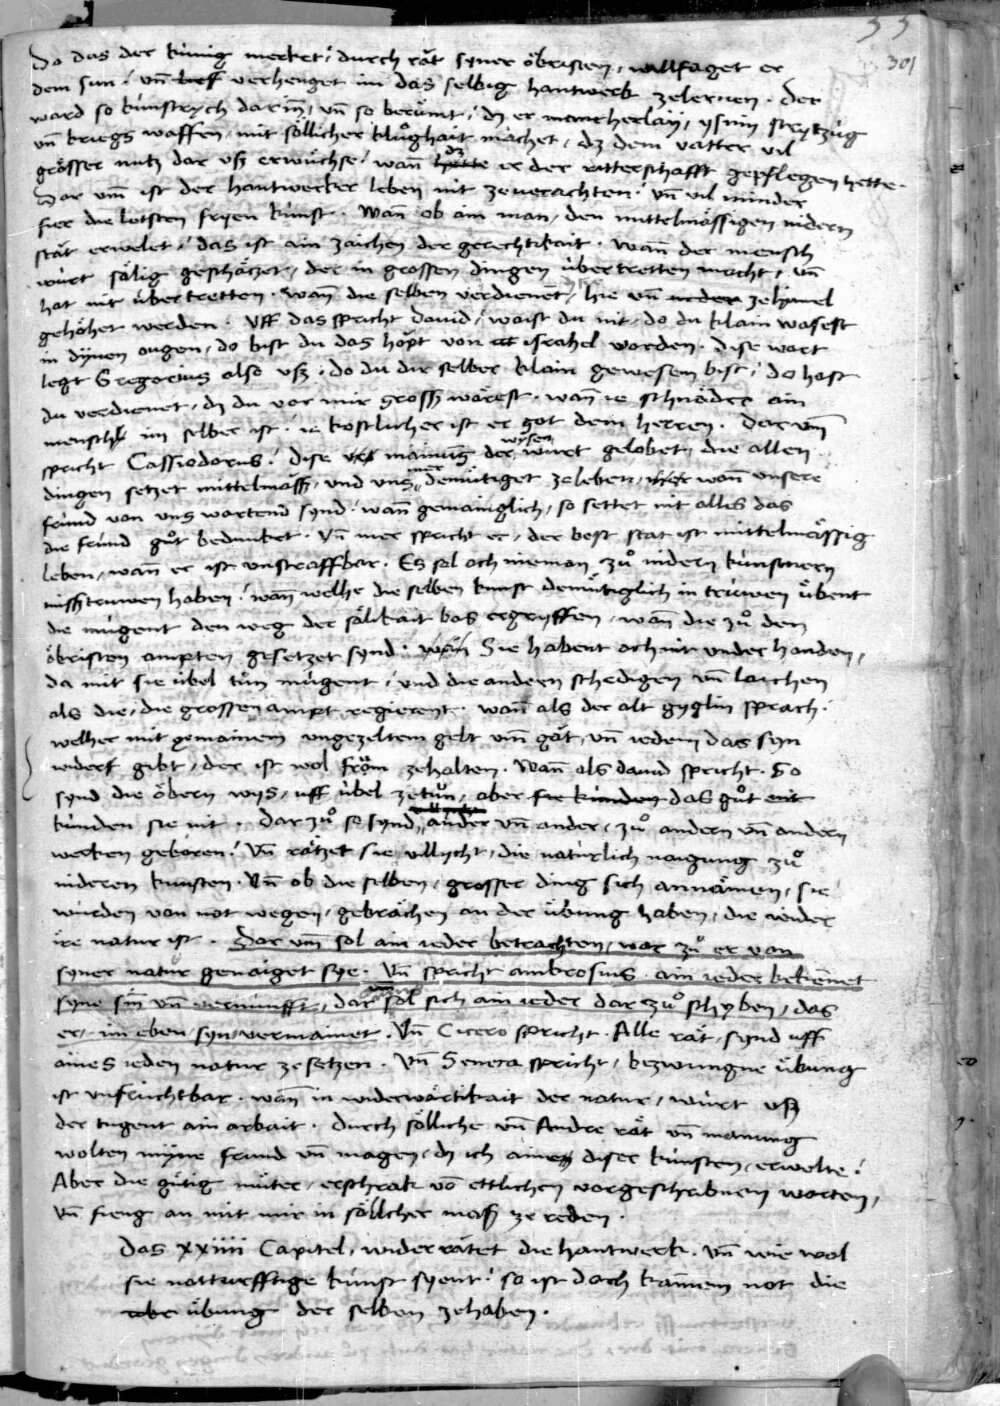 33
301
Do das der kúnig merket / durch rǎt syner óbristen / willfaget er
dem sun / vn̄ verhenget im das selbig hantwerk zelernen . der
ward so kunstrych darin̄ / vn̄ so berúmt / dz er mancherlaÿ / ysnin strytzúg
vn̄ kriegs waffen / mit sóllicher klůghait machet / dz dem vatter vil
grósser nutz dar vſz erwúchse / wann dz er der ritterschafft gepflegen hette .
Dar vm̄ ist der hantwercker leben nit zeuerachten . vn̄ vil minder
fier die letsten fryen kúnst . Wan̄ ob ain man / den mittelmássigen nidern
stǎt erwelet / das ist ain zaichen der gerechtikait . wann der mensch
wúrt sálig geschátzet / der in grossen dingen úbertretten mocht / vn̄
hat nit úbertretten . wan̄ die selben verdienent / hie vn̄ zehimel
gehóhet werden . Vff das spricht dauid / waist du nit / do du klain wasest
in dýnen augen / do bist du das hópt von israhel worden . dise wort
legt Gregorius also vſz . do du dir selber klain gewesen bist / do hast
du verdienet / dz du vor mir grosſz wárest . wann ie schnóder ain
mensch im selber ist . ie kostlicher ist er got dem herren . Dar vm̄
spricht Cassiodorus / dise mainung der wysen wúrt gelobet / die allen
dingen setzet mittelmáſz / vnd vns mer demútiget zeleben / wan̄ vnsere
frúnd von vns wartend synd . wann gemainglich / so settet nit alles das
die frúnd gůt bedunket . Vn̄ mer spricht er / der best stat ist mittelmássig
leben / wan̄ er ist vnstraffbar . Es sol och nieman zů nidern kúnstnern
misſztruwen haben / wan̄ welhe die selben kunst demútiglich in trúwen úbent
die mugent den weg der sálikait bas ergryffen / wan̄ die zů den
óbristen ampten gesetzet synd . Sie habent och nit vnder handen /
da mit sie úbel tůn mugent / vnd die andern schedigen vn̄ laichen
als die / die grossen ampt regierent . wan̄ als der alt gyglin sprach .
welher mit gemainem vngezeltem gelt vm̄ gǎt / vn̄ iedem das syn
widerf gibt / der ist wol from zehalten . Wan̄ als dauid spricht . So
synd die óbern wys / vff úbel zetůn / aber das gůt
kúnden sie nit . Dar zů so synd ander vn̄ ander / zů andern vn̄ andern
wercken geboren / Vn̄ rátzet sie villycht / die natúrlich naigung zů
nideren kunsten . Vn̄ ob die selben / grosser ding sich annámen / sie
wúrden von not wegen / gebráchen an der úbung haben / die wider
ire natur ist . Dar vm̄ sol ain ieder betrachten / war zů er von
syner natúr genaiget sye . Vn̄ spricht ambrosius . ain ieder bekennet
syne sin̄ vn̄ vernunfft / dar sol sich ain ieder dar zů schyben / das
er / im eben syn / vermainet . Vn̄ Cicero spricht . Alle rát / synd vff
aines ieden natur zesetzen . Vn̄ Seneca spricht / bezwungne úbung
ist vnfruchtbar . wan̄ in widerwártikait der natur / wúrt vſz
der tugent ain arbait . durch sólliche vn̄ Andre rát vn̄ manung
wolten mýne frund vn̄ magen / dz ich aine diser kúnsten / erwelte /
Aber die gútig můter / erschrak vō ettlichen vorgeschribnen worten /
Vn̄ fieng an mit mir in sóllcher maſz ze reden .
Das xxiiii Capitel / widerrátet die hantwerk . Vn̄ wie wol
sie notturfftige kúnst syent / so ist doch kainem not die
úbung der selben zehaben .